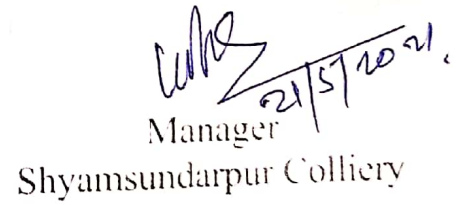 21/5/2021.
Manager
Shyamsundarpur Colliery